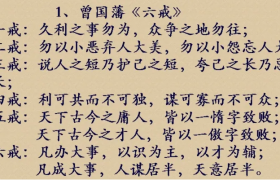 1、曾国藩《六戒》
戒：久利之事勿为，众争之地勿往；
戒：勿以小恶弃人大美，勿以小怨忘人
戒：说人之短乃护己之短，夸己之长乃忌
长；
戒：利可共而不可独，谋可寡而不可众；
戒：天下古今之庸人，皆以一惰字致败；
天下古今之才人，皆以一傲字致败；
戒：凡办大事，以识为主，以才为辅；
凡成大事，人谋居半，天意居半。